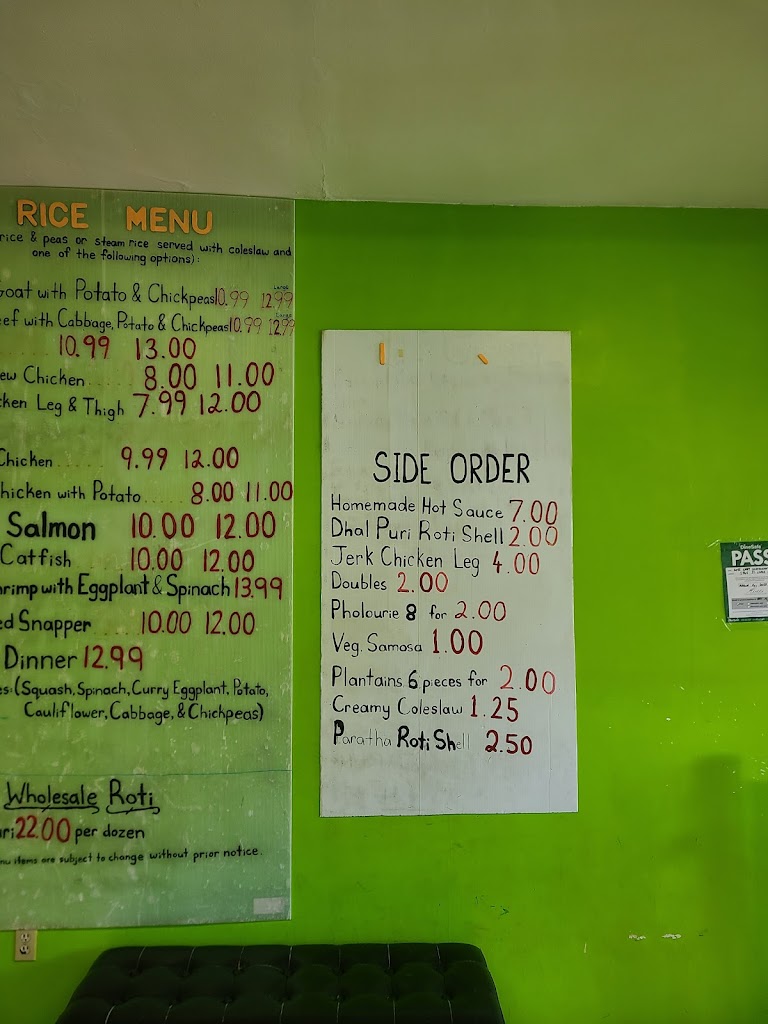 RICE MENU
rice & peas or steam rice served with coleslaw and
one of the following options):
Goat with Potato & Chickpeas 10.99 Large 12.99
eef with Cabbage, Potato & Chickpeas 10.99 Large 12.99
10.99 13.00
ew Chicken ..... 8.00 11.00
ken Leg & Thigh 7.99 12.00
Chicken ...... 9.99 12.00
hicken with Potato ..... 8.00 11.00
Salmon 10.00 12.00
Catfish 10.00 12.00
hrimp with Eggplant & Spinach 13.99
ed Snapper .... 10.00 12.00
Dinner 12.99
es: (Squash, Spinach, Curry Eggplant, Potato,
Cauliflower, Cabbage, & Chickpeas)
Wholesale Roti
uri 22.00 per dozen
nu items are subject to change without prior notice.
SIDE ORDER
Homemade Hot Sauce 7.00
Dhal Puri Roti Shell 2.00
Jerk Chicken Leg 4.00
Doubles 2.00
Pholourie 8 for 2.00
Veg. Samosa 1.00
Plantains 6 pieces for 2.00
Creamy Coleslaw 1.25
Paratha Roti Shell 2.50
DineSafe
PASS